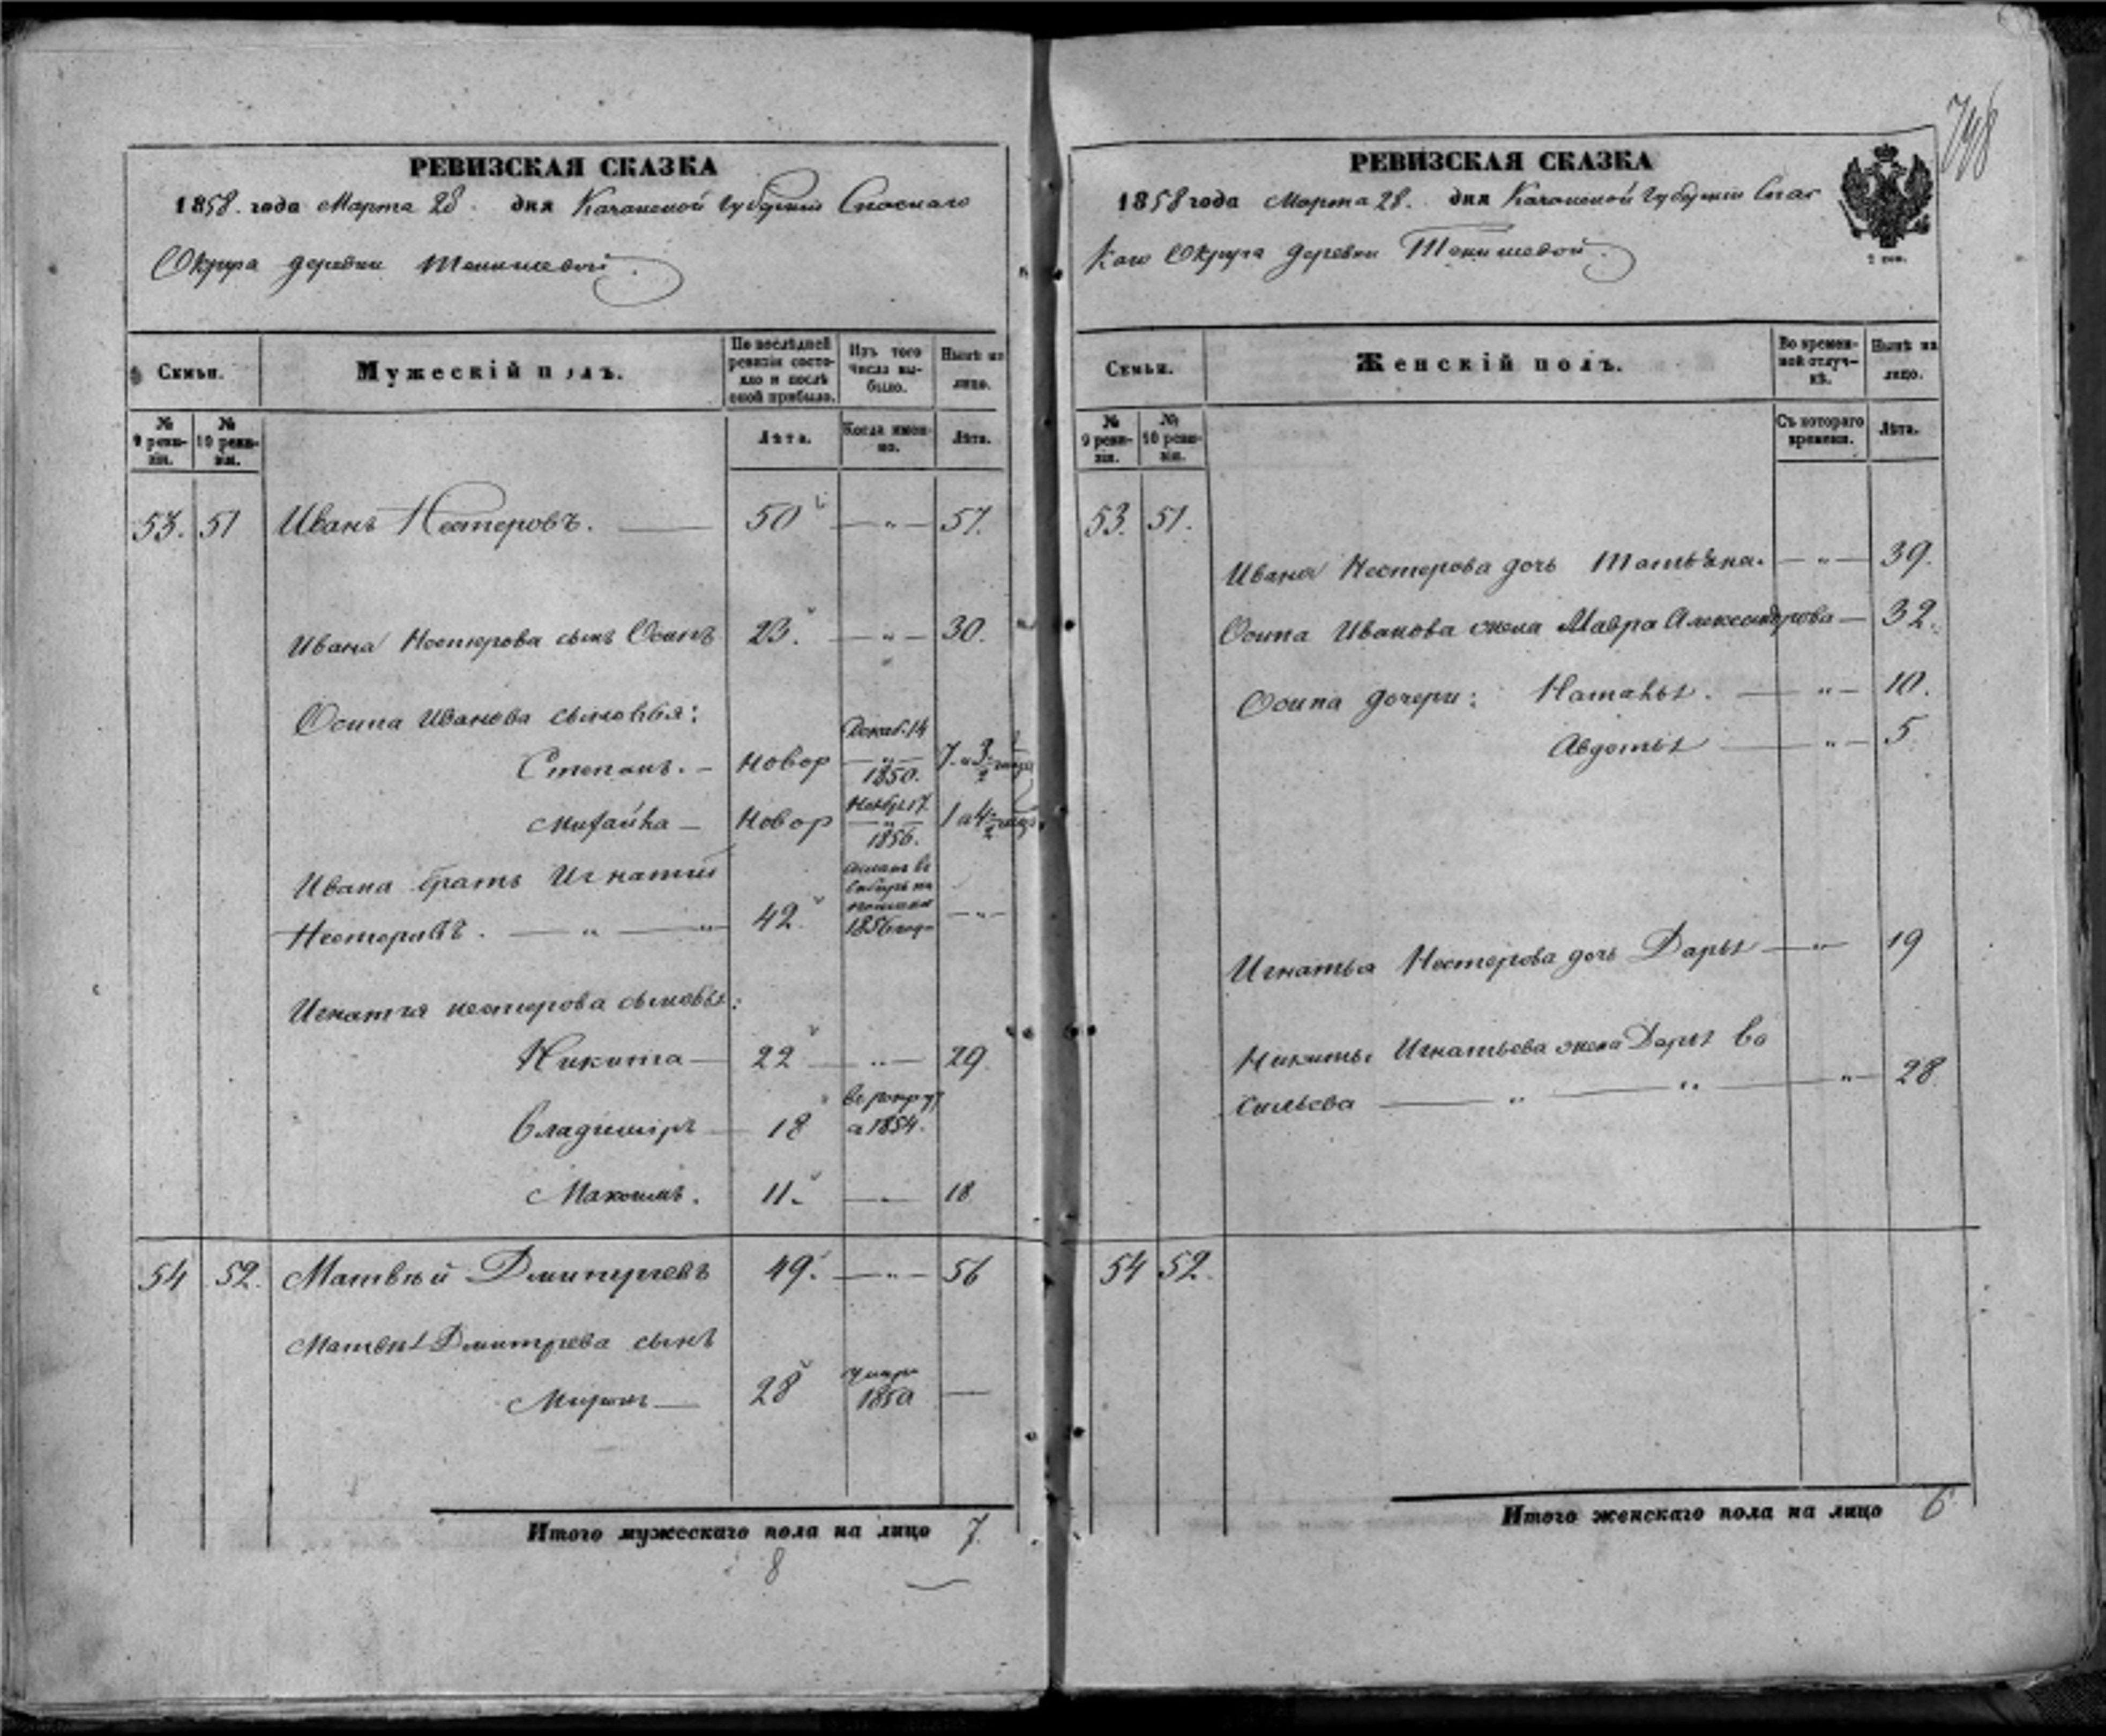 798
РЕВИЗСКАЯ СКАЗКА
1858. года Марта 28. дня Казанской Губерніи Спаскаго
Округа деревни Тенишевой.
Семьи.
Мужескій полъ.
По послѣдней ревизіи состояло и послѣ оной прибыло.
Изъ того числа выбыло.
Нынѣ на лицо.
№ 9 ревизіи.
№ 10 ревизіи.
Лѣта.
Когда именно.
Лѣта.
53. 51 Иванъ Нестеровъ. — 50 — „ — 57.
Ивана Нестерова сынъ Осипъ 23. — „ — 30.
Осипа Иванова сыновья:
Степанъ. — новор Декаб. 14 1850. 7. и 3 1/2
Михайла — Новор Нояб. 17 1856. 1 и 4 1/2
Ивана братъ Игнатій
Нестеровъ. — „ — „ 42. въ Сибирь на 1856 — „ —
Игнатія нестерова сыновья:
Никита — 22 — „ — 29.
Владиміръ — 18 въ рекру а 1854.
Максимъ. 11. — „ — 18
54 52. Матвѣй Дмитріевъ 49. — „ — 56
Матвѣя Дмитріева сынъ
Миронъ — 28 умеръ 1850 —
Итого мужескаго пола на лицо 7.
8
РЕВИЗСКАЯ СКАЗКА
1858 года Марта 28. дня Казанской Губерніи Спас
каго Округа деревни Тенишевой.
2 коп.
Семьи.
Женскій полъ.
Во временной отлучкѣ.
Нынѣ на лицо.
№ 9 ревизіи.
№ 10 ревизіи.
Съ котораго времени.
Лѣта.
53. 51.
Ивана Нестерова дочь Татьяна. — „ — 39.
Осипа Иванова жена Мавра Александрова — 32.
Осипа дочери: Наталья. — „ — 10.
Авдотья — „ — 5
Игнатья Нестерова дочь Дарья — „ 19
Никиты Игнатьева жена Дарья Ва
сильева — „ — „ — „ — 28
54 52.
Итого женскаго пола на лицо 6